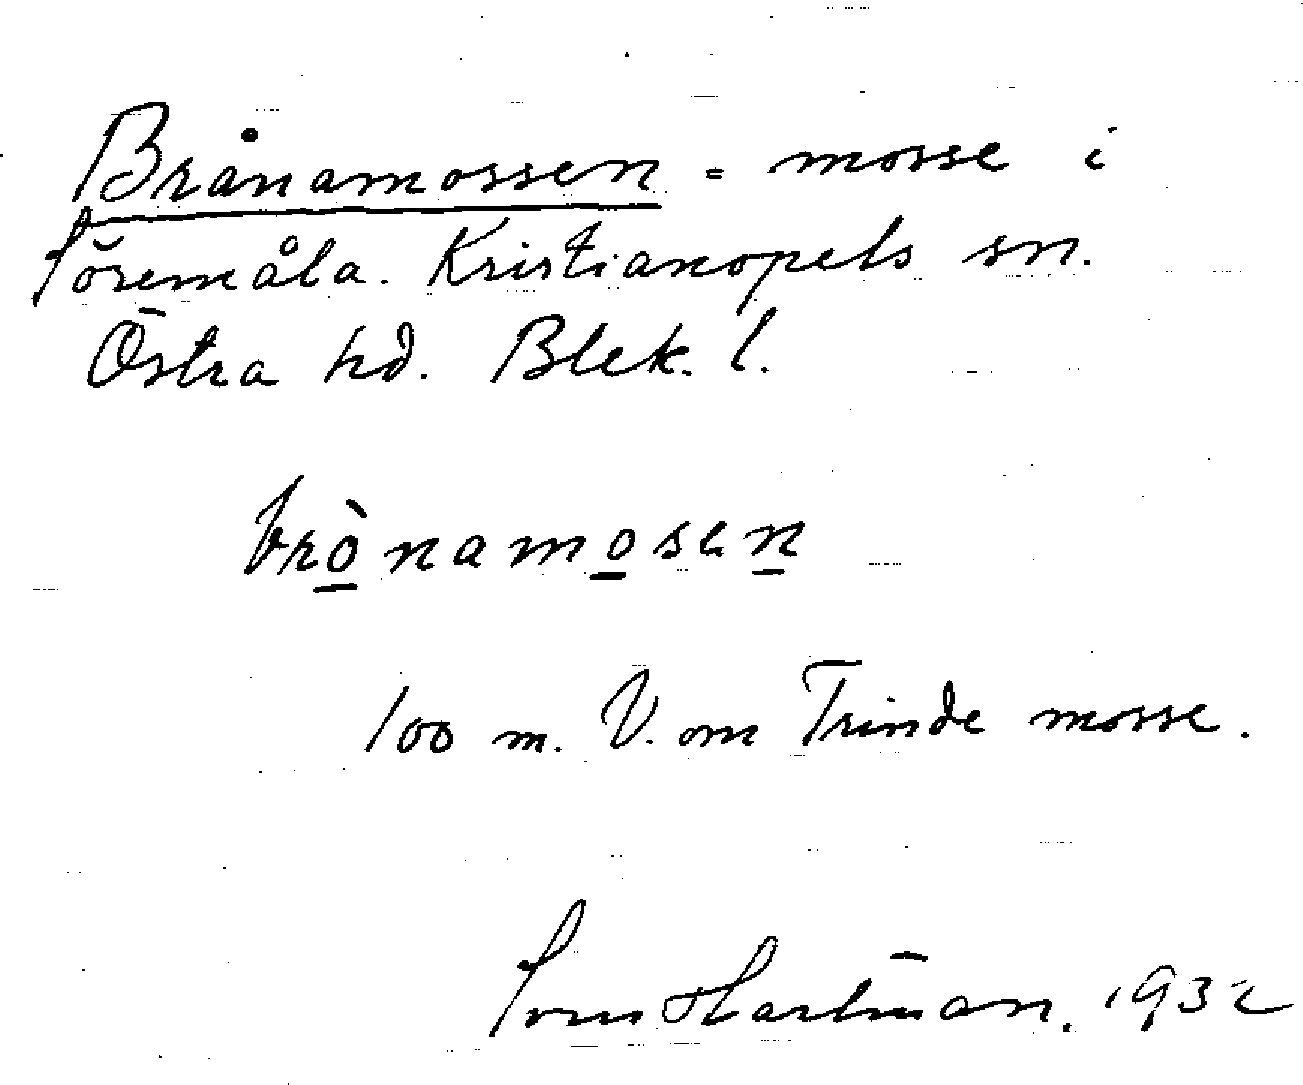 Brånamossen = mosse i
Söremåla. Kristianopels sn.
Östra hd. Blek. l.
brònamosen
100 m. V. om Trinde mosse.
Sven Hartman. 1932